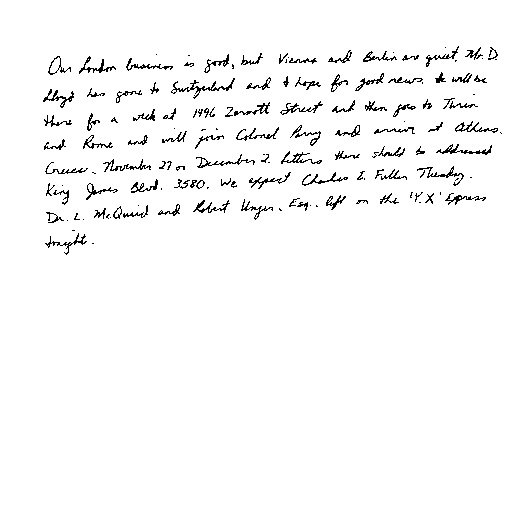 Our London business is good, but Vienna and Berlin are quiet. Mr. D.
Lloyd has gone to Switzerland and I hope for good news. He will be
there for a week at 1496 Zermott Street and then goes to Turin
and Rome and will join Colonel Parry and arrive at Athens,
Greece, November 27 or December 2. Letters there should be addressed
King James Blvd. 3580. We expect Charles E. Fuller Tuesday.
Dr. L. McQuaid and Robert Unger, Esq., left on the 'Y.X' Express
tonight.